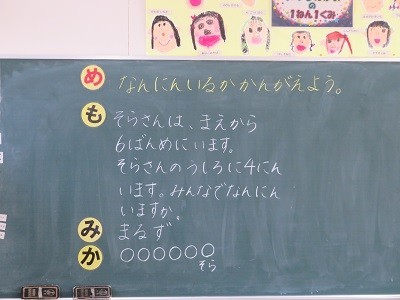 の
1ねん1くみ
め なんにんいるかかんがえよう。
も そらさんは、まえから
6ばんめにいます。
そらさんのうしろに4にん
います。みんなでなんにん
いますか。
み まるず
か ○○○○○○
そら